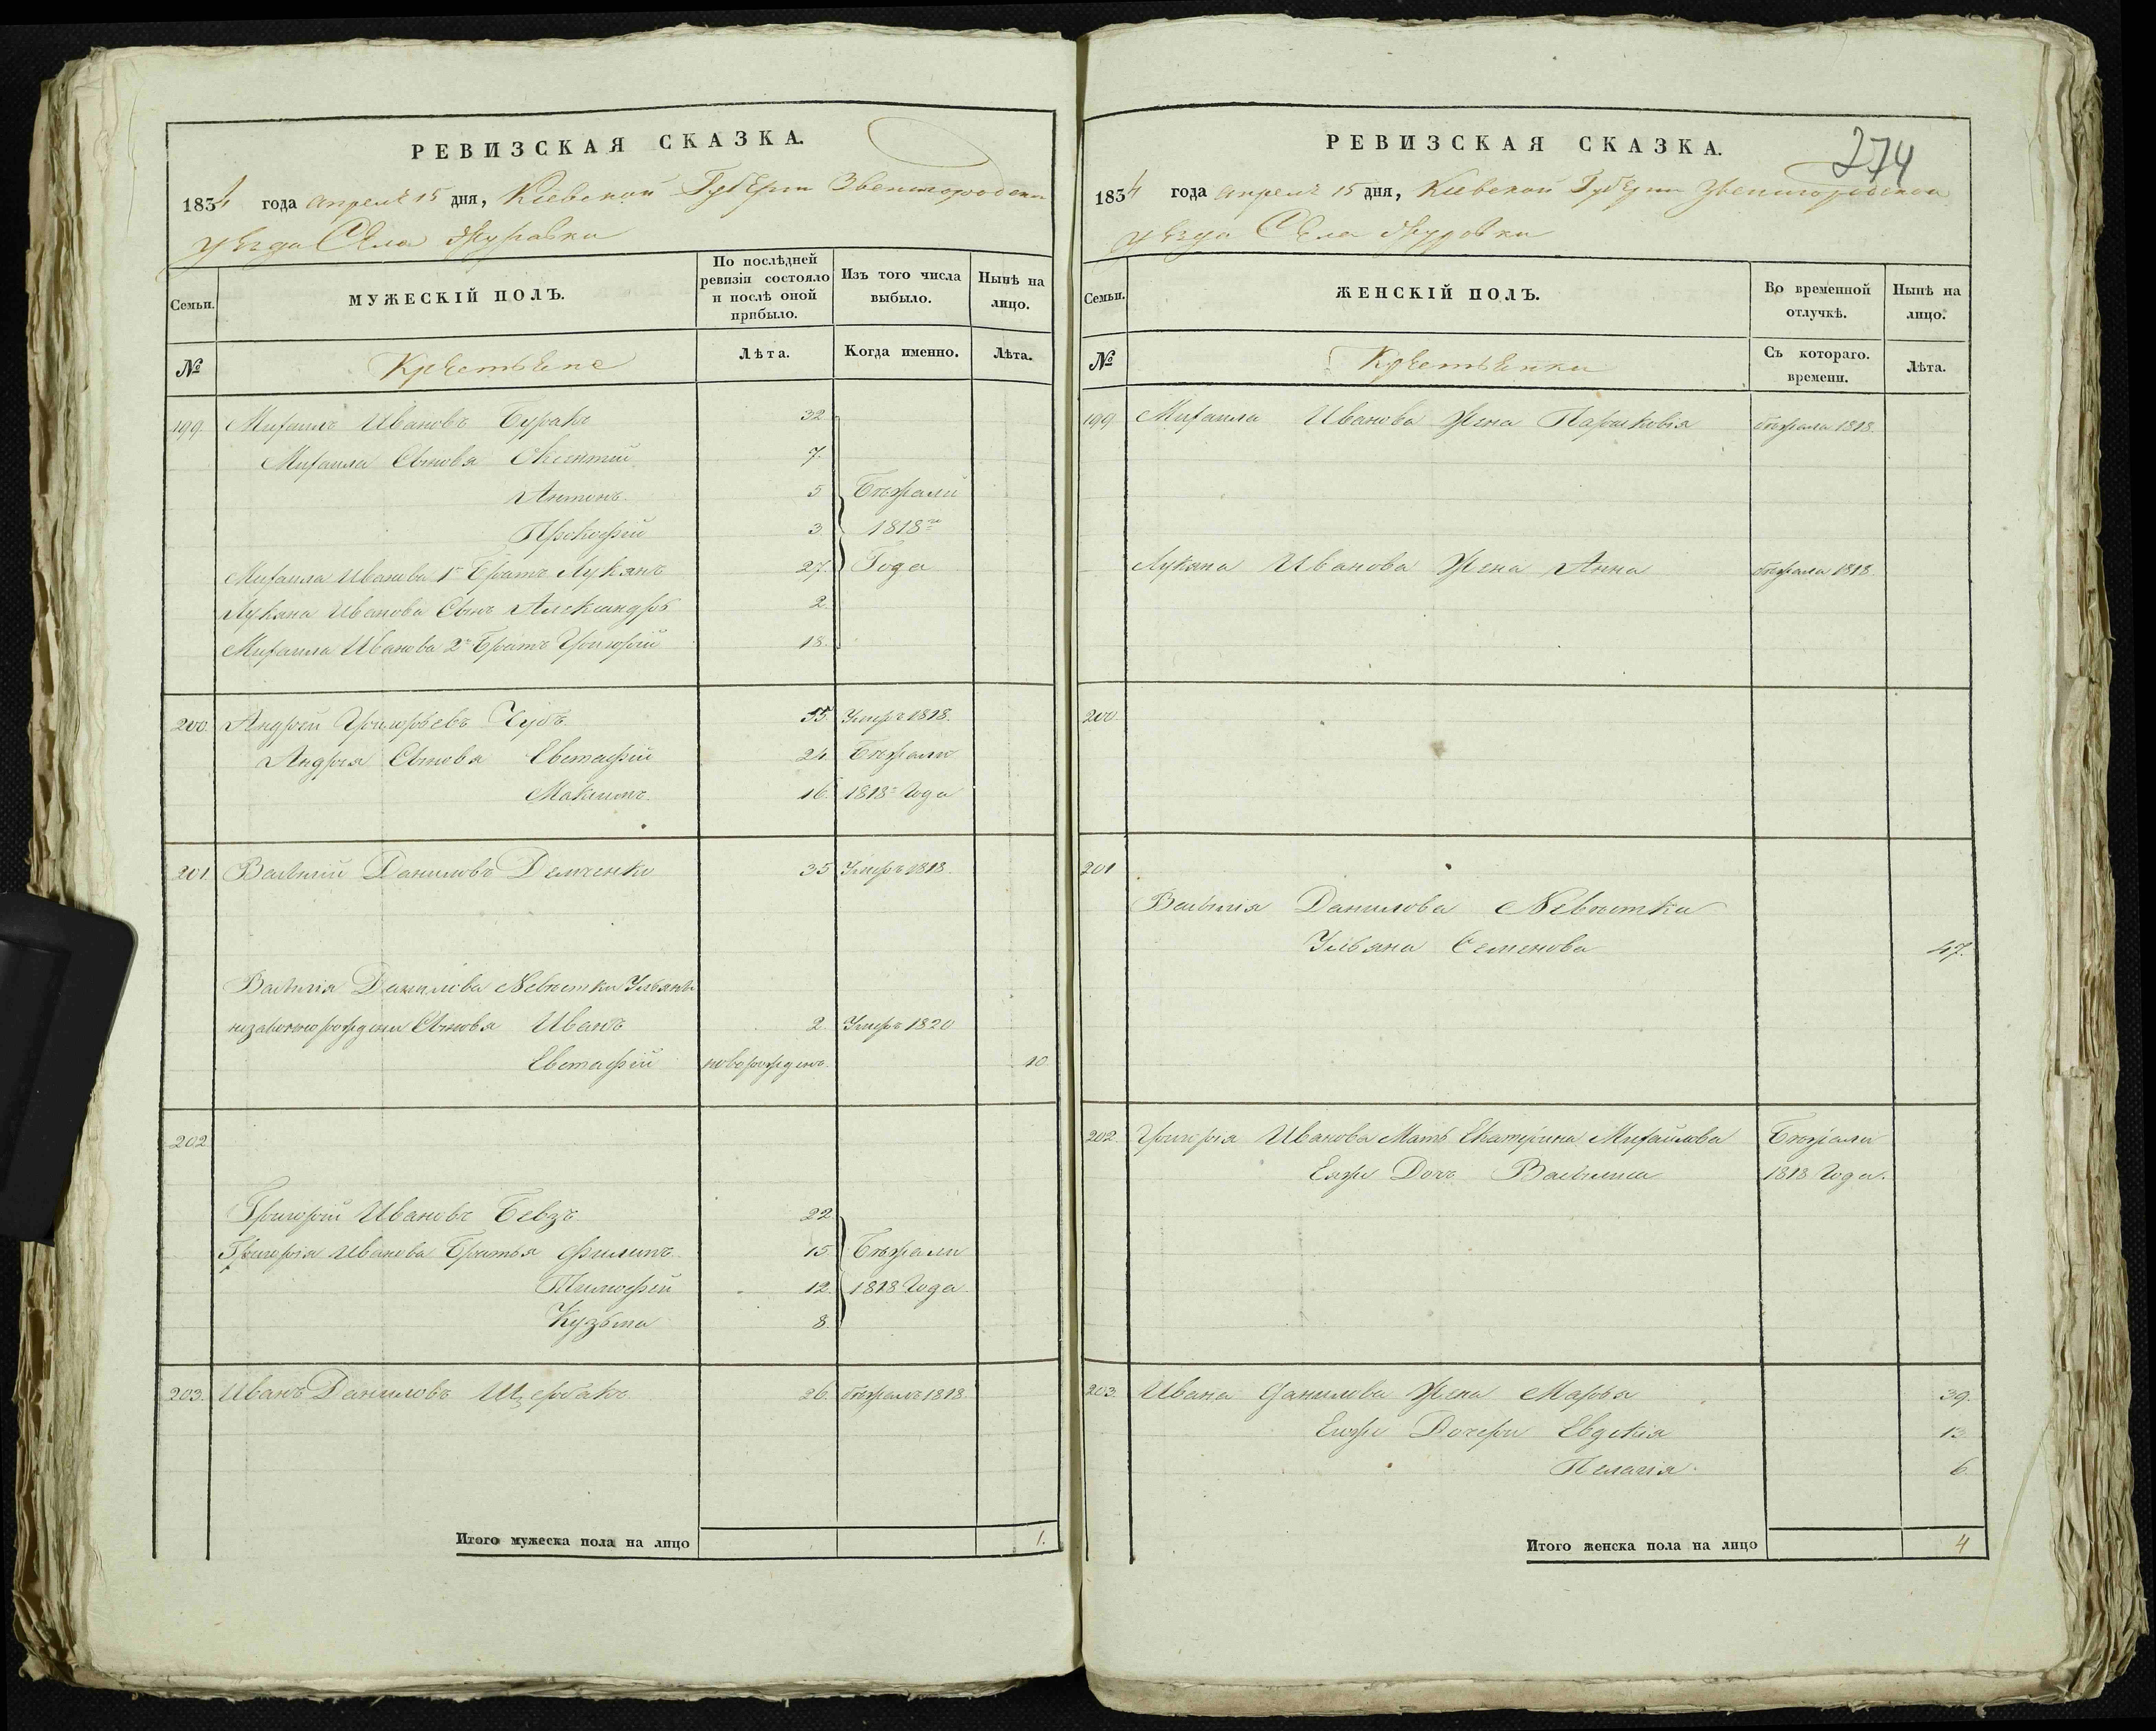 РЕВИЗСКАЯ СКАЗКА.
1834 года Апреля 15 дня, Кіевской Губерніи Звенигородскаго
уѣзда Села Журавки
Семьи.
МУЖЕСКІЙ ПОЛЪ.
По послѣдней ревизіи состояло и послѣ оной прибыло.
Изъ того числа выбыло.
Нынѣ на лицо.
№
Крестьяне
Лѣта.
Когда именно.
Лѣта.
199. Михаилъ Ивановъ Буракъ 32
Михаила Сыновья Авксентій 7.
Антонъ 5 Бѣжали
Прокофій 3 1818го
Михаила Иванова 1й Братъ Лукянъ 27. Года
Лукяна Иванова Сынъ Александръ 2.
Михаила Иванова 2й Братъ Григорій 18.
200. Андрей Григорьевъ Чубъ 55. Умеръ 1818.
Андрея Сыновья Евстафій 24 Бѣжали
Максимъ 16. 1818го Года
201. Василій Даниловъ Демченко 35 Умеръ 1818.
Василія Данилова Невѣстки Ульяны
незаконорождени Сыновья Иванъ 2. Умеръ 1820
Евстафій новорожденъ. 10.
202.
Григорій Ивановъ Бевзъ 22.
Григорія Иванова Братья Филипъ 15. Бѣжали
Тимофій 12. 1818 Года.
Кузьма 8.
203. Иванъ Даниловъ Щербакъ 26. бѣжалъ 1818.
Итого мужеска пола на лицо 1.
274
РЕВИЗСКАЯ СКАЗКА.
1834 года Апреля 15 дня, Кіевской Губерніи Звенигородскаго
уѣзда Села Журовки
Семьи.
ЖЕНСКІЙ ПОЛЪ.
Во временной отлучкѣ.
Нынѣ на лицо.
№
Крестьянки
Съ котораго. времени.
Лѣта.
199. Михаила Иванова Жена Парасковія бѣжала 1818.
Лукяна Иванова Жена Анна бѣжала 1818.
200.
201
Василія Данилова Невѣстка
Ульяна Семенова 47.
202. Григорія Иванова Мать Екатерина Михайлова Бѣжали
Еяже Дочь Васылыса 1818 Года.
203. Ивана Данилова Жена Марья 39.
Егоже Дочери Евдокія 13
Пелагія. 6.
Итого женска пола на лицо 4